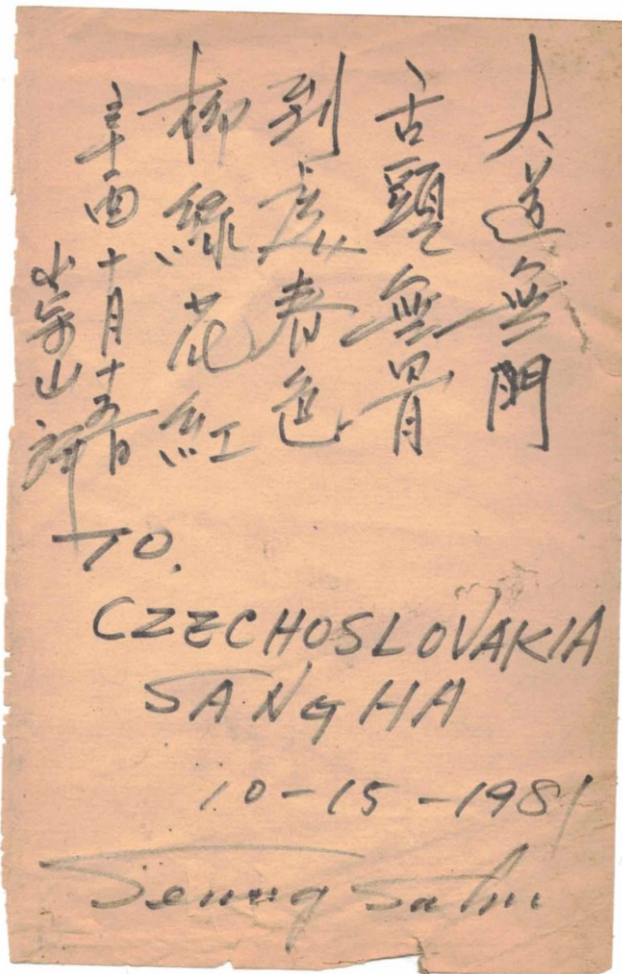 大道無門
舌頭無骨
到處春色
柳綠花紅
辛酉十月十五日
崇山
TO.
CZECHOSLOVAKIA
SANGHA
10-15-1981
Seung Sahn